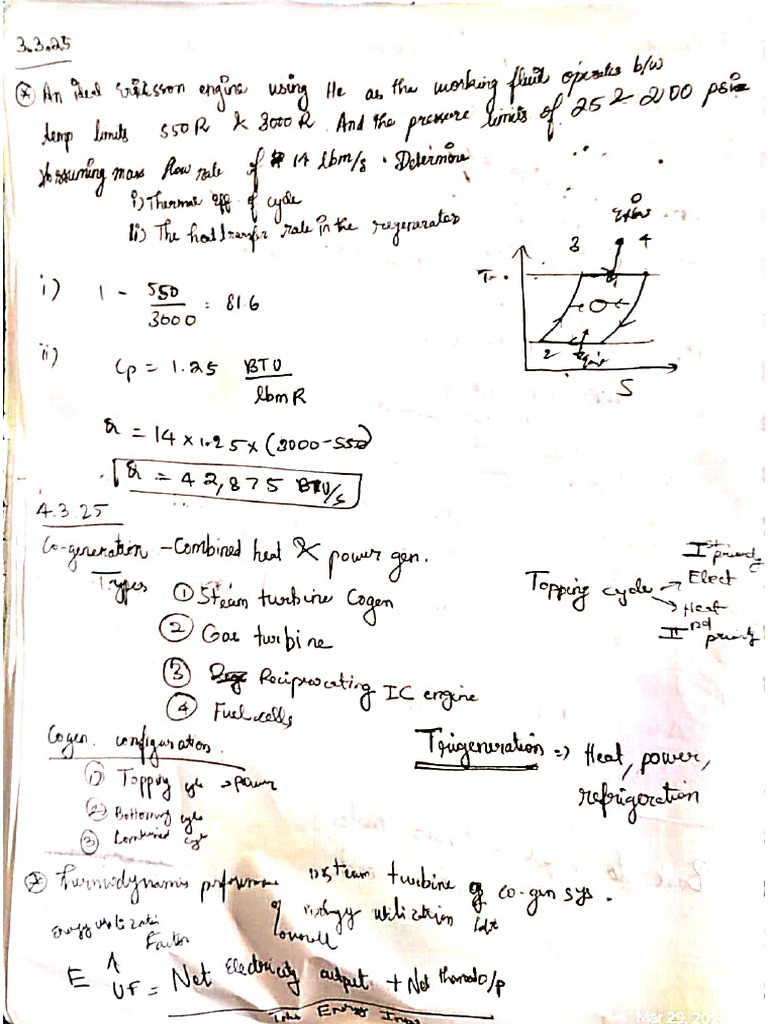 3.3.25
* An ideal Eriksson engine using He as the working fluid operates b/w
temp limits 550 R & 3000 R. And the pressure limits of 25 & 200 psia
Assuming mass flow rate of 14 lbm/s. Determine
i) Thermal eff of cycle
ii) The heat transfer rate in the regenerator
3 4
T
2
S
i) 1 - 550/3000 = 81.6
ii) Cp = 1.25 BTU/lbm R
Q = 14 x 1.25 x (3000-550)
Q = 42,875 BTU/s
4.3.25
Co-generation - Combined heat & power gen.
Types
① Steam turbine Cogen
② Gas turbine
③ Reciprocating IC engine
④ Fuel cells
Topping cycle → Elect Ist priority
→ Heat IInd priority
Cogen. configuration.
① Topping cycle → power
② Bottoming cycle
③ Combined cycle
Trigeneration => Heat, power,
refrigeration
* Thermodynamic performance steam turbine of co-gen sys.
overall energy utilization
Energy utilization Factor
E UF = Net Electricity output + Net thermal o/p
Energy
Mar 29, 20